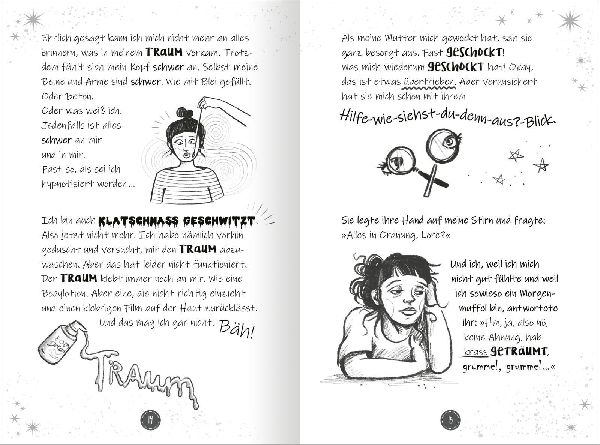 Ehrlich gesagt kann ich mich nicht mehr an alles
erinnern, was in meinem TRAUM vorkam. Trotz-
dem fühlt sich mein Kopf schwer an. Selbst meine
Beine und Arme sind schwer. Wie mit Blei gefüllt.
Oder Beton.
Oder was weiß ich.
Jedenfalls ist alles
schwer an mir
und in mir.
Fast so, als sei ich
hypnotisiert worden ...
Ich bin auch KLATSCHNASS GESCHWITZT.
Also jetzt nicht mehr. Ich habe nämlich vorhin
geduscht und versucht, mir den TRAUM abzu-
waschen. Aber das hat leider nicht funktioniert.
Der TRAUM klebt immer noch an mir. Wie eine
Bodylotion. Aber eine, die nicht richtig einzieht
und einen klebrigen Film auf der Haut zurücklässt.
Und das mag ich gar nicht. Bäh!
TRAUM
14
Als meine Mutter mich geweckt hat, sah sie
ganz besorgt aus. Fast GESCHOCKT!
Was mich wiederum GESCHOCKT hat! Okay,
das ist etwas übertrieben. Aber verunsichert
hat sie mich schon mit ihrem
Hilfe-wie-siehst-du-denn-aus?-Blick.
Sie legte ihre Hand auf meine Stirn und fragte:
»Alles in Ordnung, Lore?«
Und ich, weil ich mich
nicht gut fühlte und weil
ich sowieso ein Morgen-
muffel bin, antwortete
ihr: »Hm, ja, also nö,
keine Ahnung, hab
krass GETRÄUMT,
grummel, grummel ...«